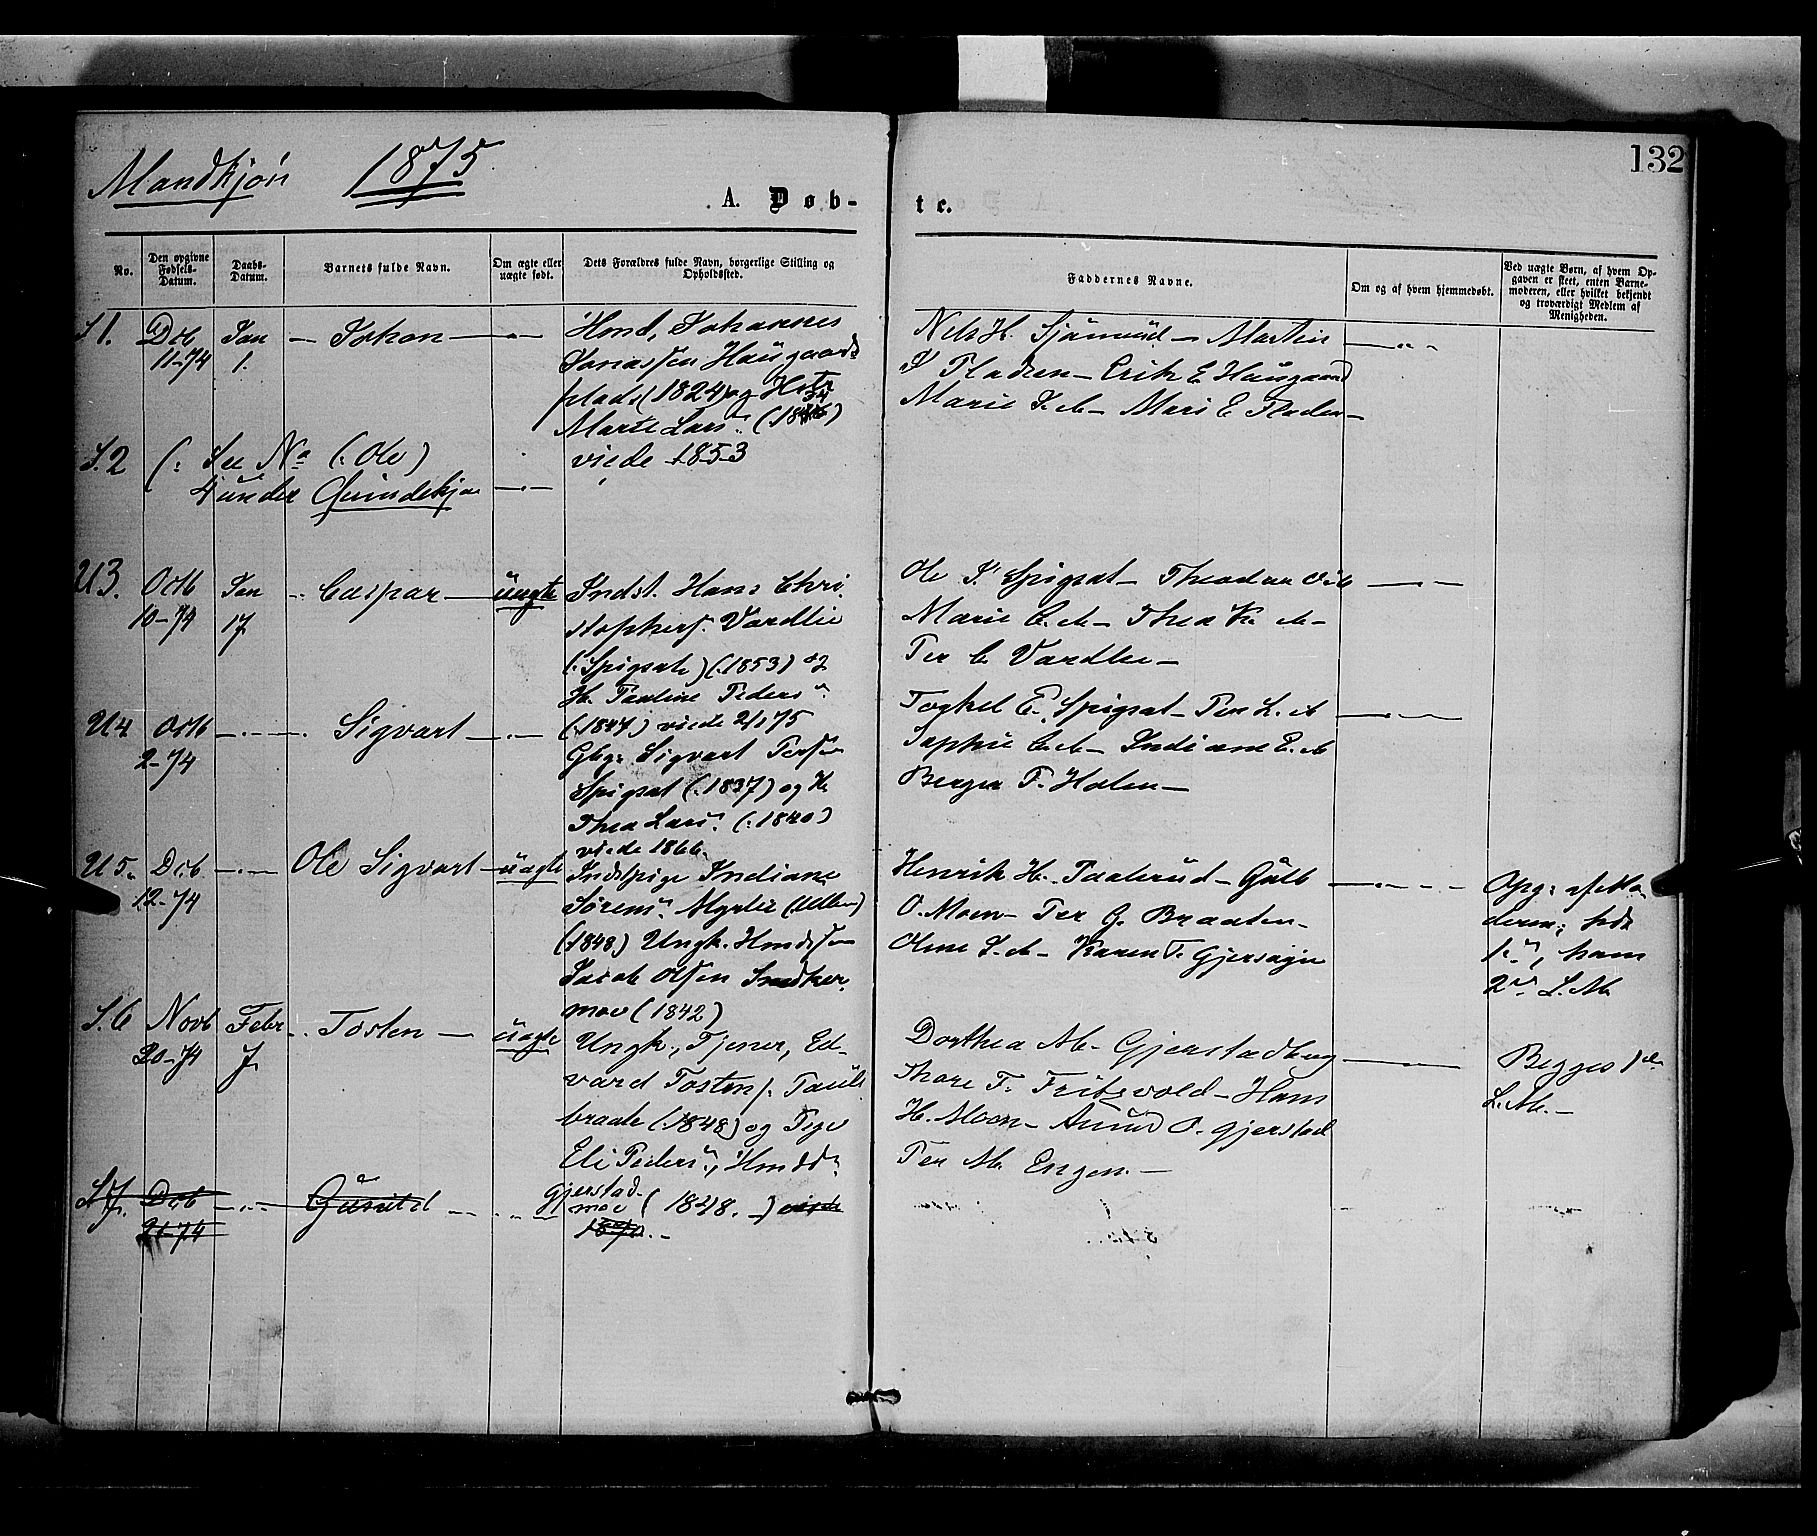 Mandkjøn 1875
132
A. Døb-
te.
No.
Den opgivne Fødsels-Datum.
Daabs-Datum.
Barnets fulde Navn.
Om ægte eller uægte født.
Dets Forældres fulde Navn, borgerlige Stilling og Opholdssted.
Faddernes Navne.
Om og af hvem hjemmedøbt.
Ved uægte Børn, af hvem Opgaven er skeet, enten Barnemoderen, eller hvilket bekjendt og troværdigt Medlem af Menigheden.
S 1. Dcb 11-74 Jan 1. Johan
Hmd. Johannes
Jonassen Haugaards
plads (1824) og Hstr
Marte Lars. (18
viede 1853
Nels H. Martin
J Pladsen - Erik E Haugaard
Marie J. - Mari E Pladsen
S. 2 (: See No (: Ole)
4 under Qvindekjøn
U 3. Octb 10-74 Jan 17. Caspar uægte
Indst. Hans Chri
stophers. Vardlie
(: Spigset) (1853) og
H. Pauline Peders
(:1847) viede 2/1 75
Ole P. Spigset - Theodor
Marie C. - Thea K.
Per C. Vardlie -
U 4 Octb 2-74 Sigvart
Gbr. Sigvart Persen
Spigset (:1837) og H.
Thea Lars. (:1840)
viede 1866.
Torkel E. Spigset - Per L.
Sophie C. - Indiane E.
Berger P. Holen -
U 5. Dcb 12-74 Ole Sigvart uægte
Indstpige Indiane
Sørens. Myrlie (Ullern)
(1848) Ungk. Hmdssøn
Jacob Olsen
moe (1842)
Henrik H. Paalerud - Gulb
O. Moen - Per G. Braaten -
Oline S. - Karen T. Gjersøjen
Opg: af Mo
deren; hds
1ste, hans
2det L. M.
S. 6 Novb 20-74 Febr 7. Tosten uægte
Ungk., Tjener, Ed-
vard Tosten. Pauls
braate (:1848) og Pige
Eli Peders., Hmdd.
Gjerstad
moe (1848. -) viede
1870. -
Dorthea M. Gjerstadberg
Thore T. Fritsvold - Hans
H. Moen - Amund O. Gjerstad
Per M. Engen. -
Begges 1ste
L. M. -
S 7. Dcb 21-74 Gunild